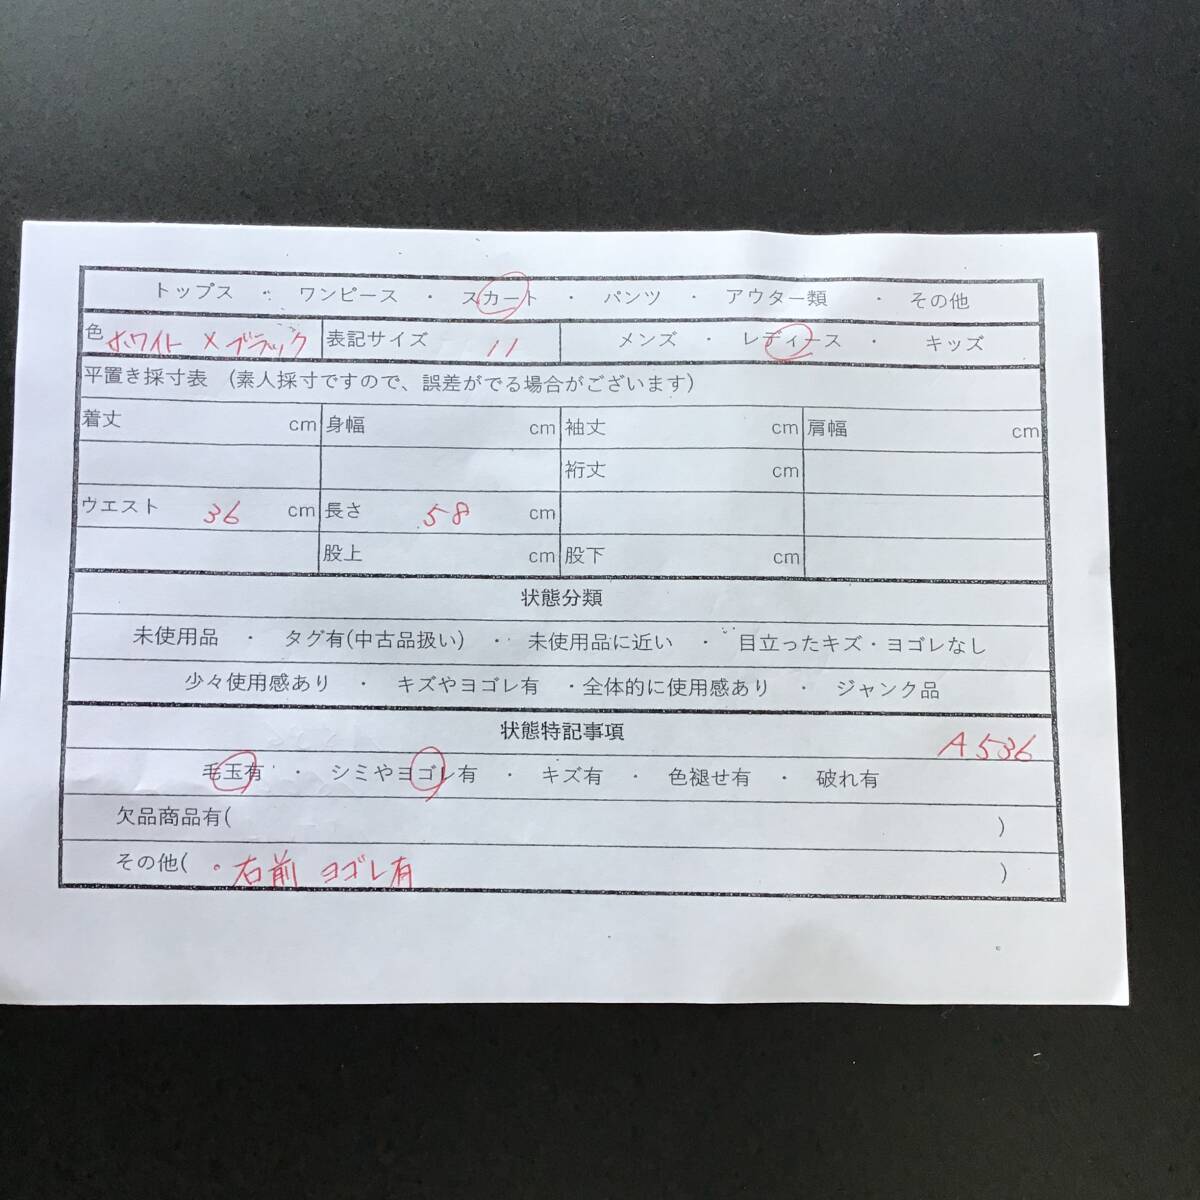 トップス ・ ワンピース ・ スカート ・ パンツ ・ アウター類 ・ その他
色 ホワイト×ブラック 表記サイズ 11 メンズ ・ レディース ・ キッズ
平置き採寸表 (素人採寸ですので、誤差がでる場合がございます)
着丈 cm 身幅 cm 袖丈 cm 肩幅 cm
裄丈 cm
ウエスト 36 cm 長さ 58 cm
股上 cm 股下 cm
状態分類
未使用品 ・ タグ有(中古品扱い) ・ 未使用品に近い ・ 目立ったキズ・ヨゴレなし
少々使用感あり ・ キズやヨゴレ有 ・全体的に使用感あり ・ ジャンク品
状態特記事項 A536
毛玉有 ・ シミやヨゴレ有 ・ キズ有 ・ 色褪せ有 ・ 破れ有
欠品商品有( )
その他( ・右前 ヨゴレ有 )